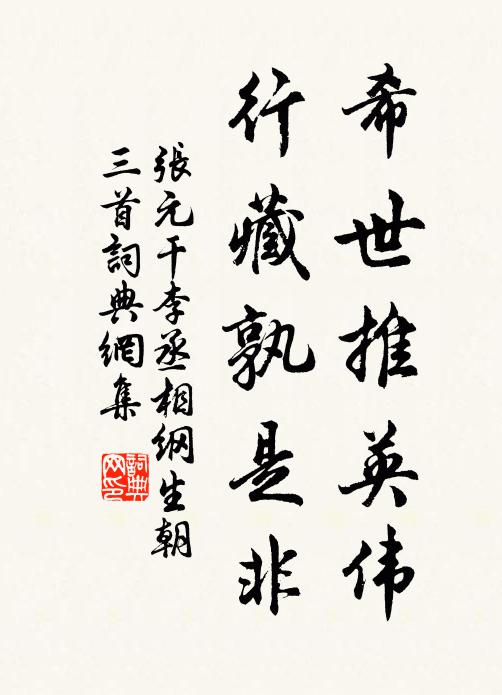 希世推英伟
行藏孰是非
張元干李丞相纲生朝
三首詞典網集
詞典网印